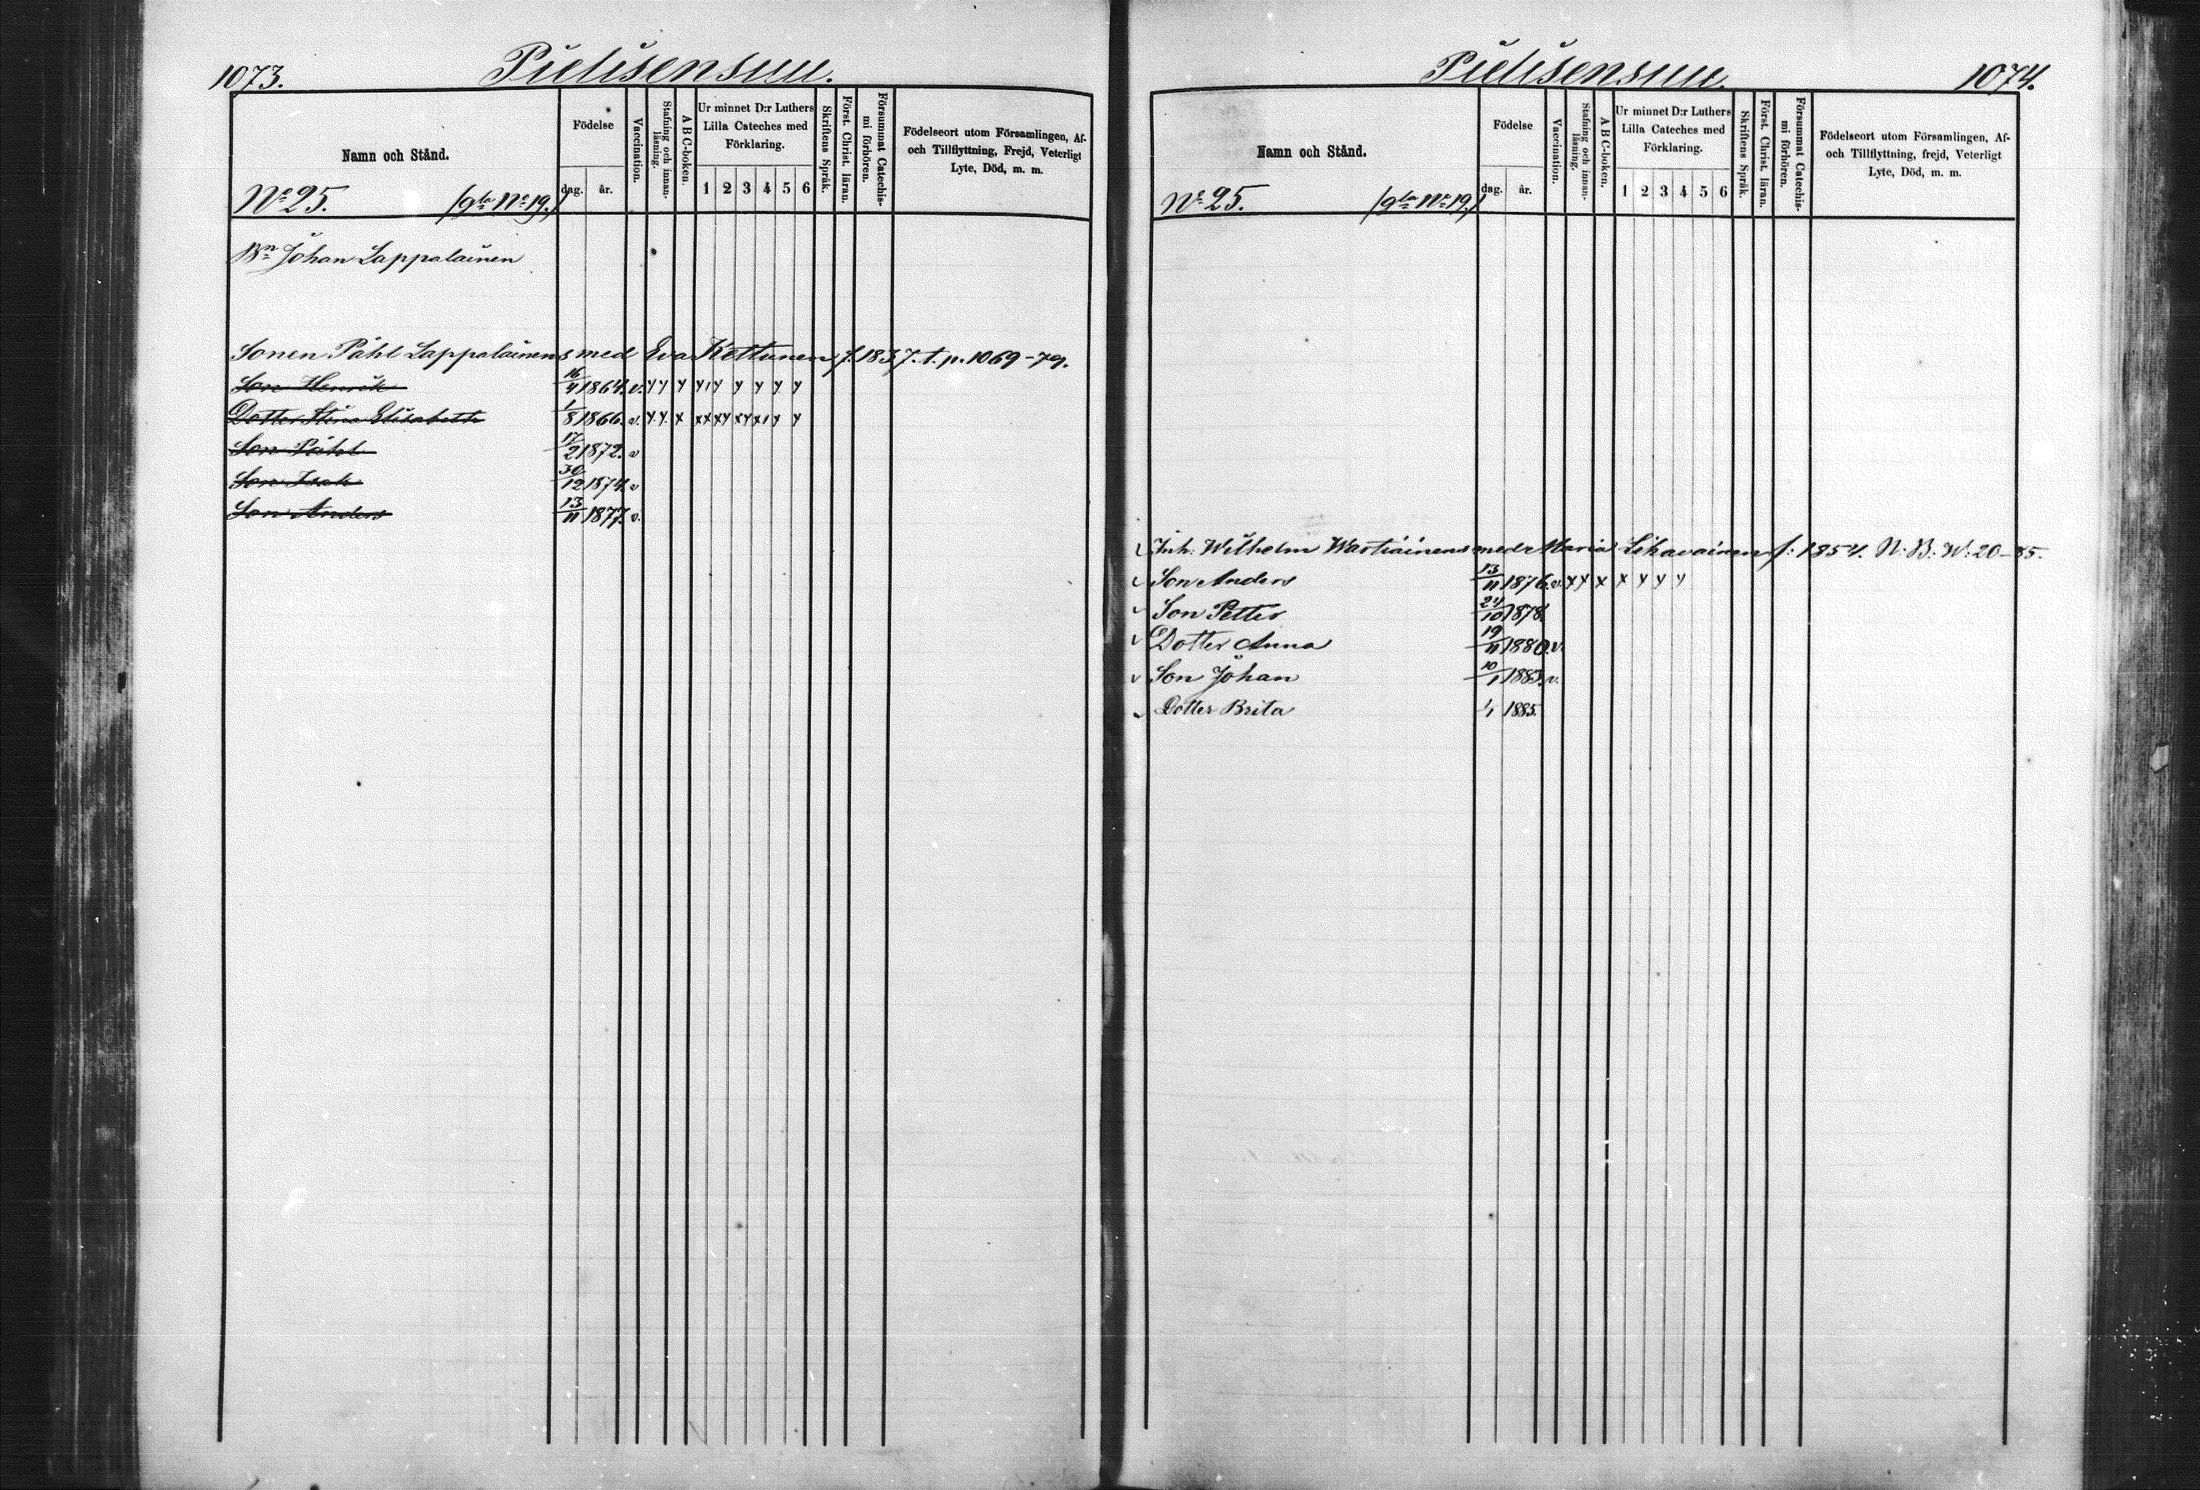 1073.
Pielisensuu.
Namn och Stånd.
Födelse
dag. år.
Vaccination.
Stafning och innan-läsning.
A B C-boken.
Ur minnet D:r Luthers Lilla Cateches med Förklaring.
1 2 3 4 5 6
Skriftens Språk.
Först. Christ. läran.
Försummat Catechis-mi förhören.
Födelseort utom Församlingen, Af-
och Tillflyttning, Frejd, Veterligt
Lyte, Död, m. m.
No 25. (gla No 19.)
Bn Johan Lappalainen
Sonen Påhl Lappalainens med Eva Kettunen f. 1837. t. p. 1069-79.
Son Henrik 16/4 1864. v. y y y y y y y y y y
Dotter Stina Elisabeth 1/8 1866. v. y. y. x x x x y x y x y y
Son Påhl 17/2 1872. v
Son Isak 30/12 1874. v
Son Anders 13/11 1877. v.
Pielisensuu.
1074.
Namn och Stånd.
Födelse
dag. år.
Vaccination.
Stafning och innan-läsning.
A B C-boken.
Ur minnet D:r Luthers Lilla Cateches med Förklaring.
1 2 3 4 5 6
Skriftens Språk.
Först. Christ. läran.
Försummat Catechis-mi förhören.
Födelseort utom Församlingen, Af-
och Tillflyttning, frejd, Veterligt
Lyte, Död, m. m.
No 25. (gla No 19.)
Inh. Wilhelm Wartiainens med Maria Likavainen f. 1854. N. B. W. 20-85.
Son Anders 13/11 1876. v. x y x x y y y
Son Petter 24/10 1878.
Dotter Anna 19/11 1880. v.
Son Johan 10/1 1883. v.
Dotter Brita 1885.